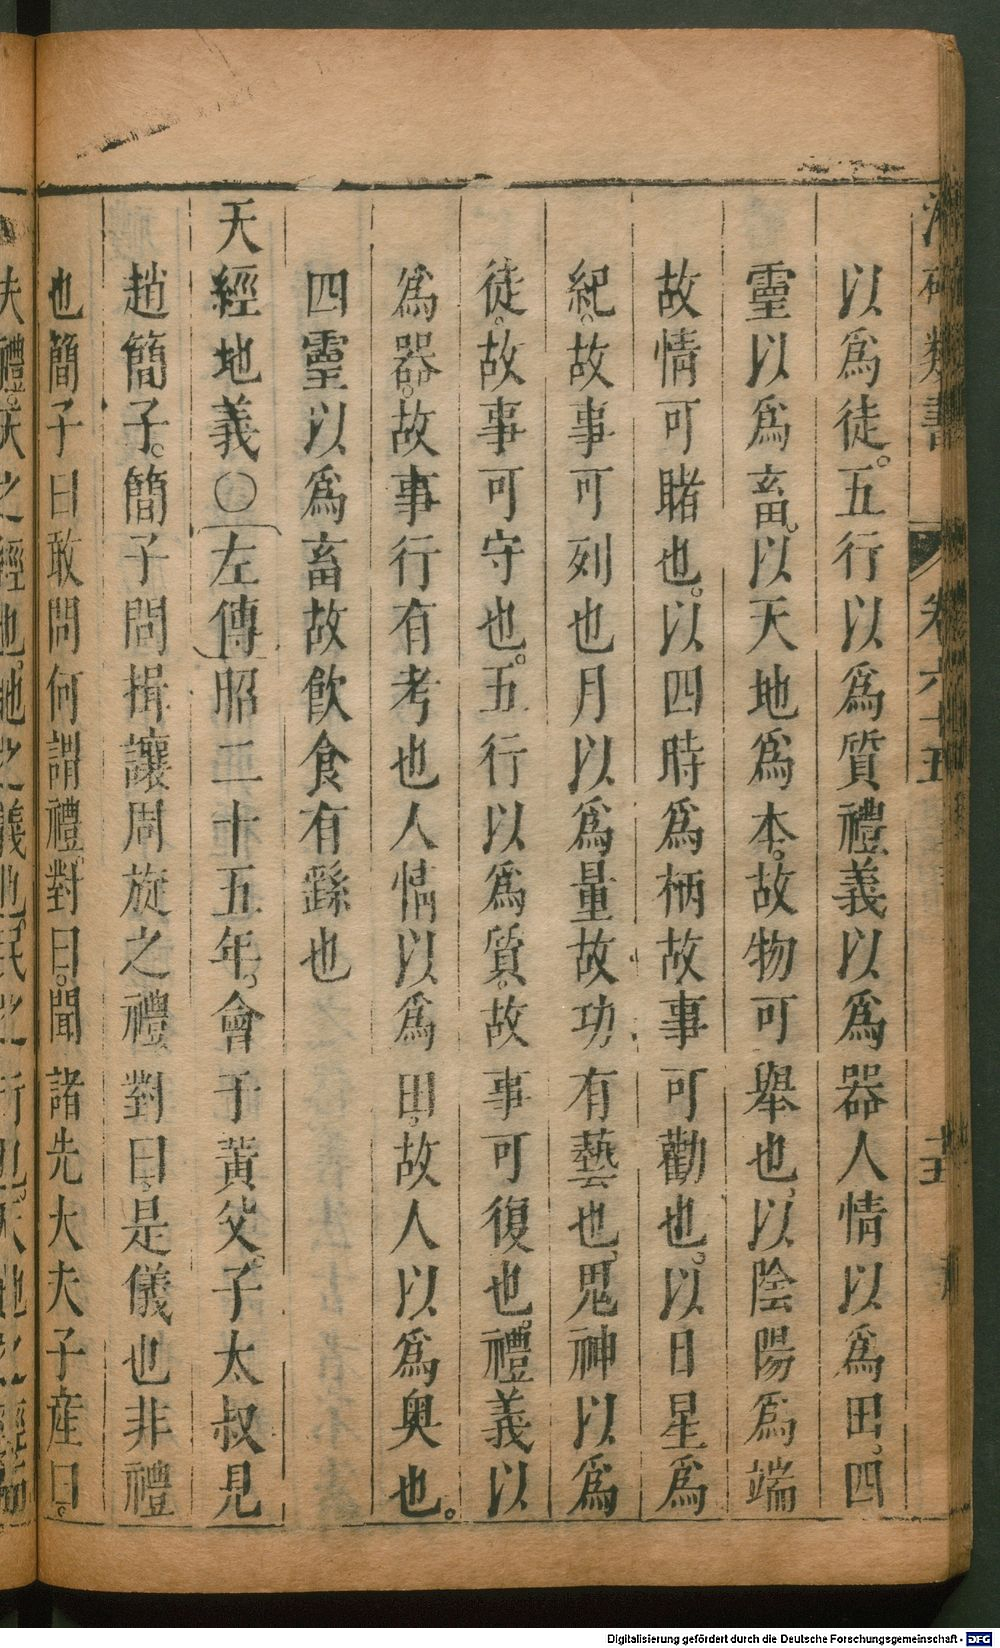 類書　卷六十五
以爲徒。五行以爲質禮義以爲器人情以爲田。四
靈以爲畜。以天地爲本。故物可舉也。以陰陽爲端
故情可睹也。以四時爲柄故事可勸也。以日星爲
紀。故事可列也月以爲量故功有藝也。鬼神以爲
徒。故事可守也。五行以爲質。故事可復也。禮義以
爲器。故事行有考也人情以爲田。故人以爲奧也。
四靈以爲畜故飲食有繇也
天經地義○左傳昭二十五年。會于黃父。子太叔見
趙簡子。簡子問揖讓周旋之禮對曰。是儀也非禮
也簡子曰敢問何謂禮。對曰。聞諸先大夫子產曰。
夫禮。天之經也。地之義也。民之行也。天地之經
Digitalisierung gefördert durch die Deutsche Forschungsgemeinschaft - DFG